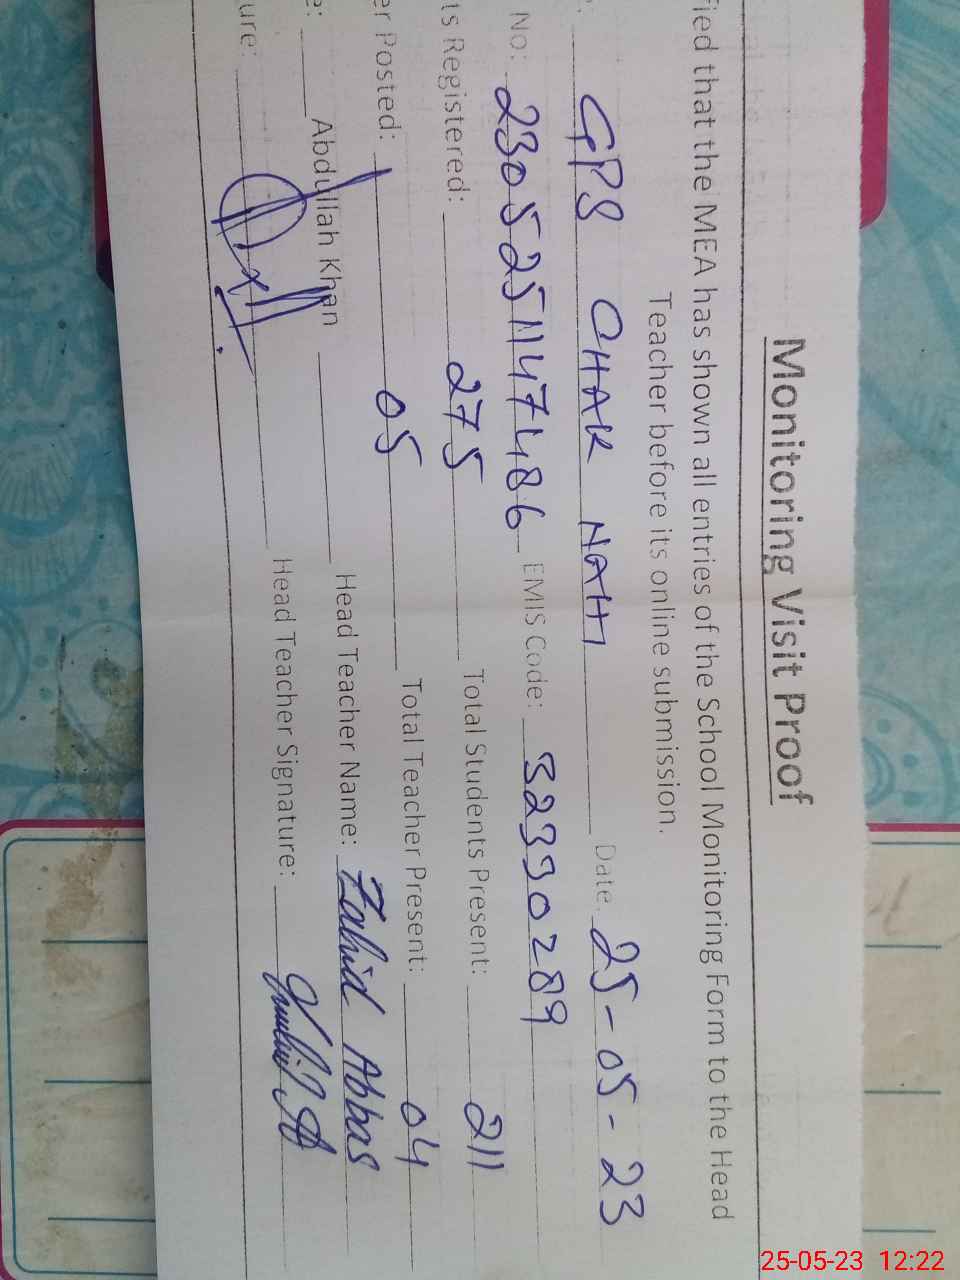 Monitoring Visit Proof
fied that the MEA has shown all entries of the School Monitoring Form to the Head
Teacher before its online submission.
GPS CHAK NAHI Date. 25-05-23
No: 2305251147486 EMIS Code: 32330289
ts Registered: 275 Total Students Present: 211
er Posted: 05 Total Teacher Present: 04
e: Abdullah Khan Head Teacher Name: Zahid Abbas
ure: Head Teacher Signature:
25-05-23 12:22